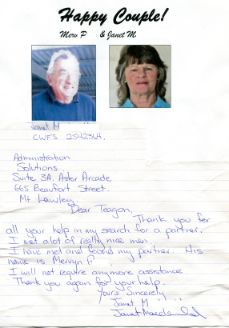 Happy Couple!
Merv P & Janet M
Janet M
CWFS
Administration
Solutions
Suite 3A, Aster Arcade
665 Beaufort Street.
Mt Lawley
Dear Teagan,
Thank you for
all your help in my search for a partner.
I met alot of really nice men.
I have met and found my partner. His
name is Mervyn P
I will not require anymore assistance
Thank you again for your help.
Yours Sincerely
Janet M